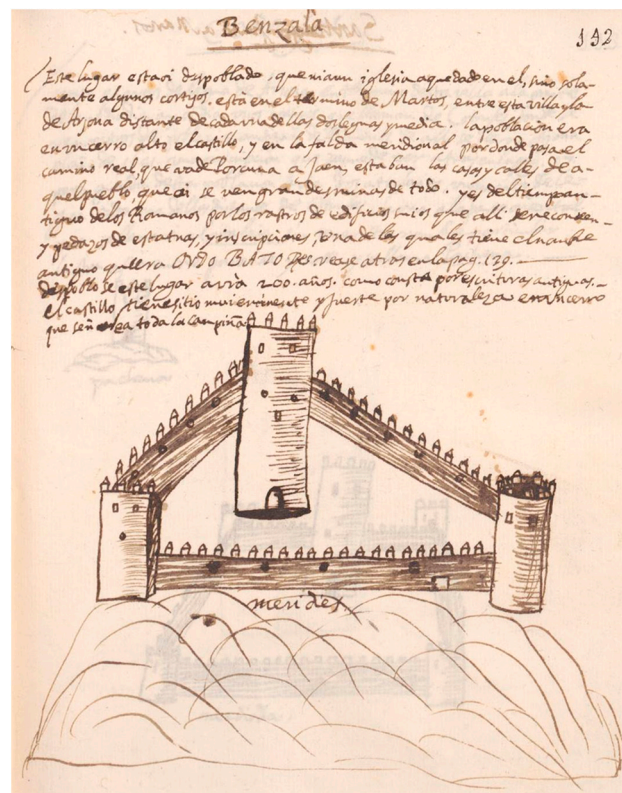 Benzalá
142
Este lugar esta oi despoblado, que ni aun iglesia a quedado en el, sino sola-
mente algunos cortijos. está en el termino de Martos, entre esta villa y la
de Arjona distante de cada una de llas dos leguas y media. la poblacion era
en un cerro alto el castillo, y en la falda meridional por donde pasa el
camino real, que va de Porcuna a Jaen, estaban las casas y calles de a-
quel pueblo, que oi se ven grandes ruinas de todo. y es del tiempo an-
tiguo de los Romanos por los rastros de edificios suios que alli se reconocen
y pedazos de estatuas, y inscripciones, una de las quales tiene el nombre
antiguo que era ORDO BATO vease atras en la pag. 129.
despoblose este lugar avrá 200. años. como consta por escrituras antiguas.
el castillo tiene sitio mui eminente y fuerte por naturaleza en un cerro
que señorea toda la campiña
merides